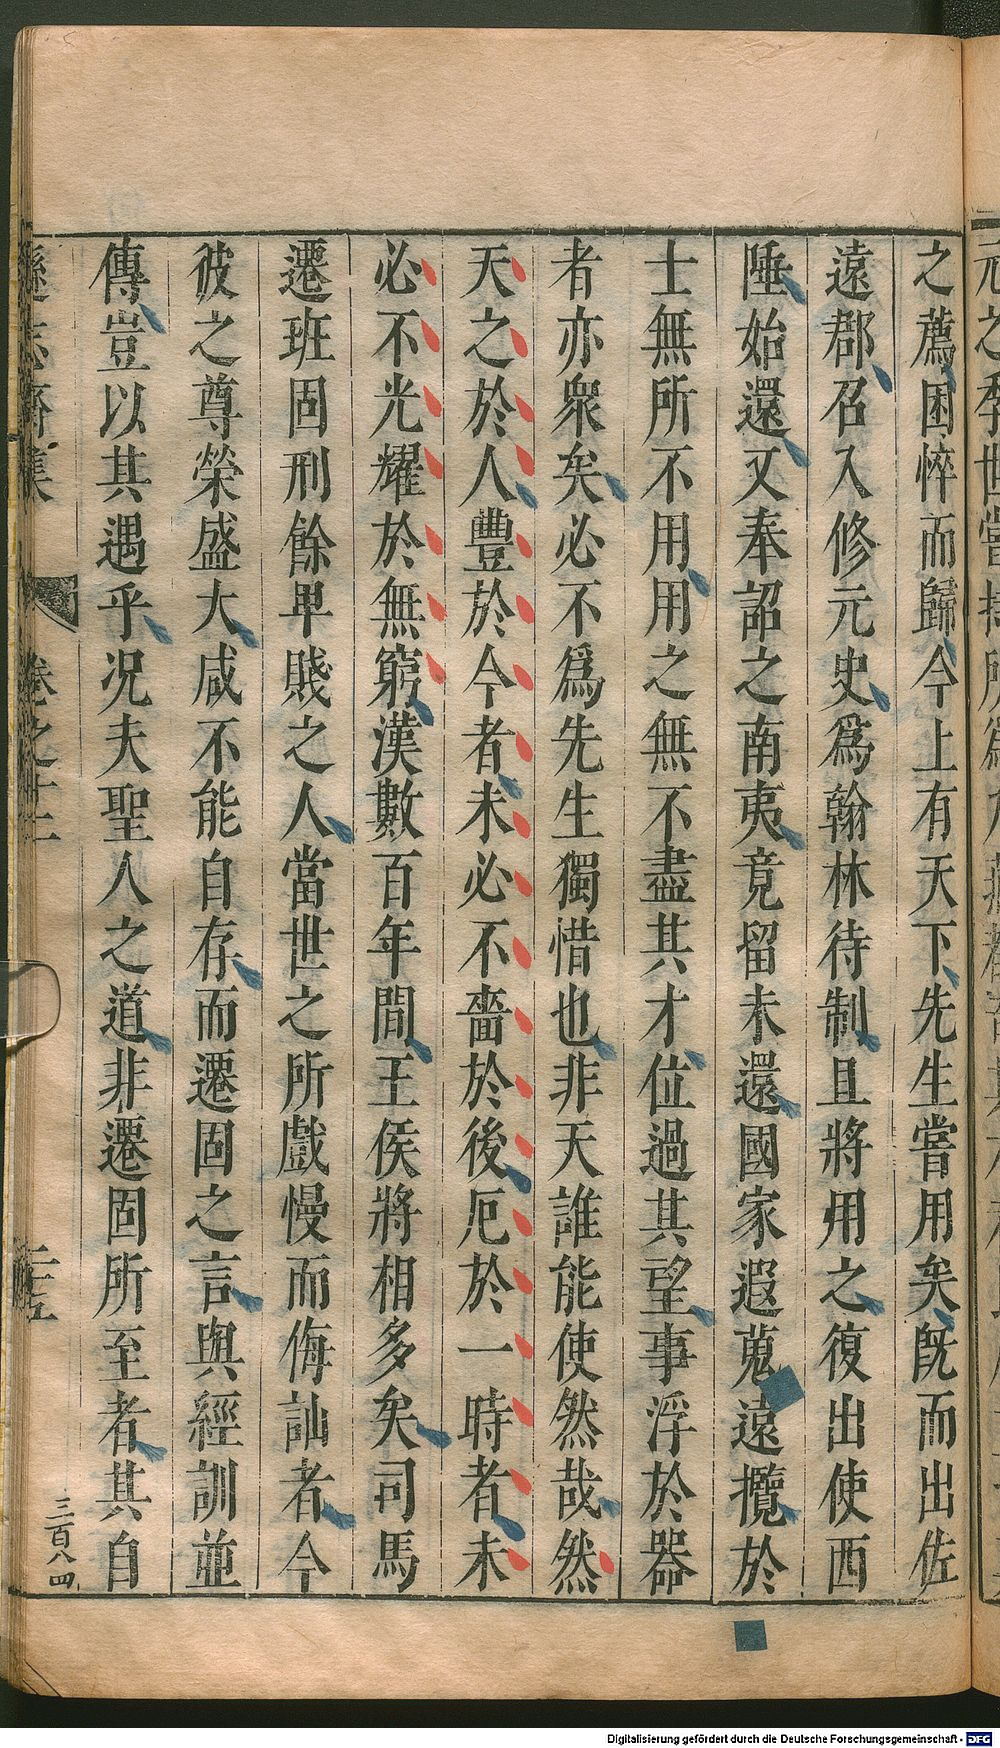 之薦困悴而歸今上有天下先生嘗用矣旣而出佐
遠郡召入修元史爲翰林待制且將用之復出使西
陲始還又奉詔之南夷竟留未還國家遐蒐遠攬於
士無所不用用之無不盡其才位過其望事浮於器
者亦衆矣必不爲先生獨惜也非天誰能使然哉然
天之於人豐於今者未必不嗇於後厄於一時者未
必不光耀於無窮漢數百年間王侯將相多矣司馬
遷班固刑餘卑賤之人當世之所戲慢而侮訕者今
彼之尊榮盛大咸不能自存而遷固之言與經訓並
傳豈以其遇乎况夫聖人之道非遷固所至者其自
遜志齋集 卷之十二
三百八四
Digitalisierung gefördert durch die Deutsche Forschungsgemeinschaft - DFG